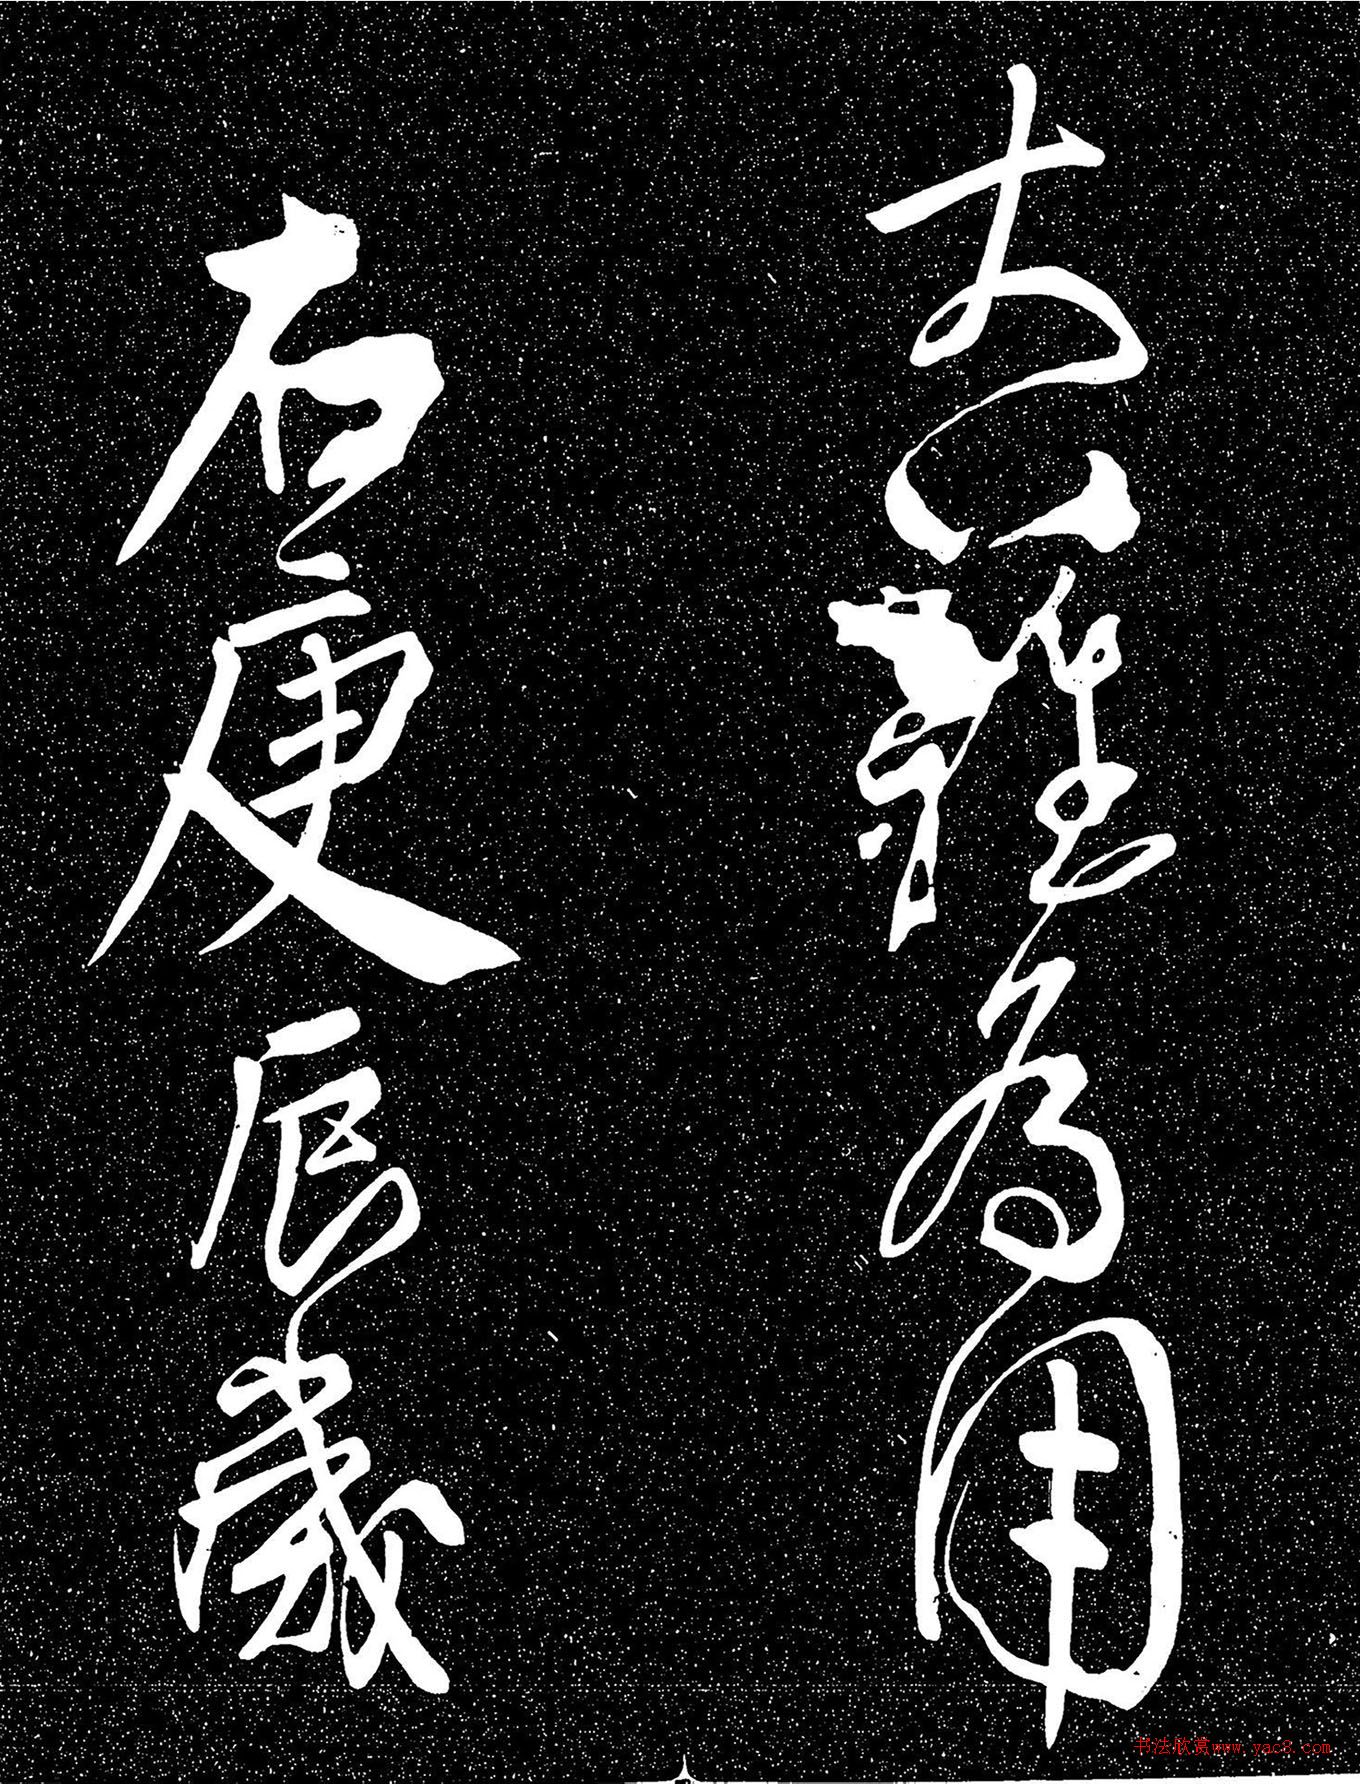 大難為用
右庚辰歲
书法欣赏www.yac8.com